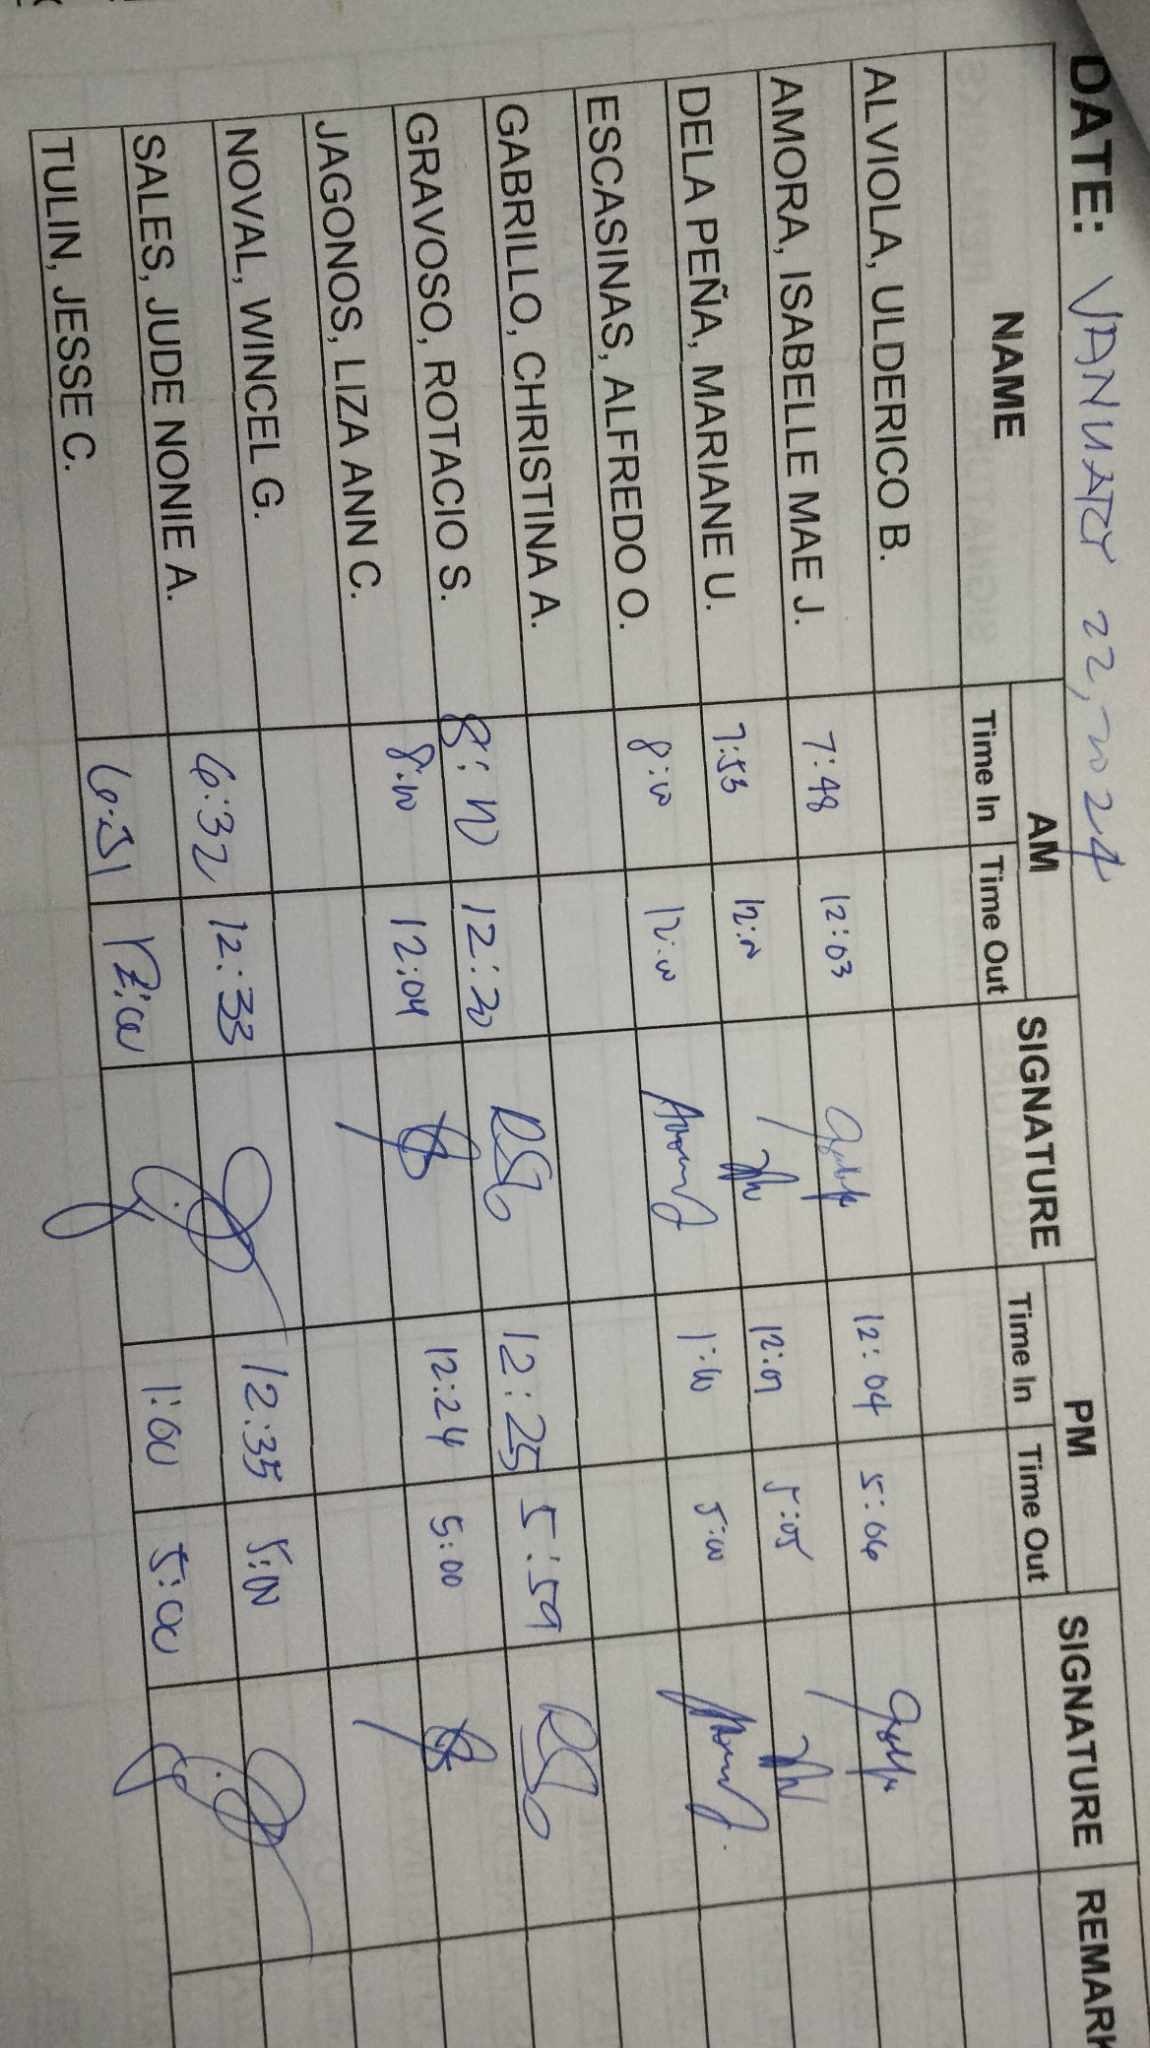 DATE: JANUARY 22, 2024
NAME AM SIGNATURE PM SIGNATURE REMARK
Time In Time Out Time In Time Out
ALVIOLA, ULDERICO B.
AMORA, ISABELLE MAE J. 7:48 12:03 12:04 5:06
DELA PEÑA, MARIANE U. 7:53 12:01 5:05
ESCASINAS, ALFREDO O. 8:00 12:00 1:00 5:00
GABRILLO, CHRISTINA A.
GRAVOSO, ROTACIO S. 8:00 12:20 12:25 5:59
JAGONOS, LIZA ANN C. 8:00 12:04 12:24 5:00
NOVAL, WINCEL G.
SALES, JUDE NONIE A. 6:32 12:33 12:35 5:00
TULIN, JESSE C. 12:00 1:00 5:00